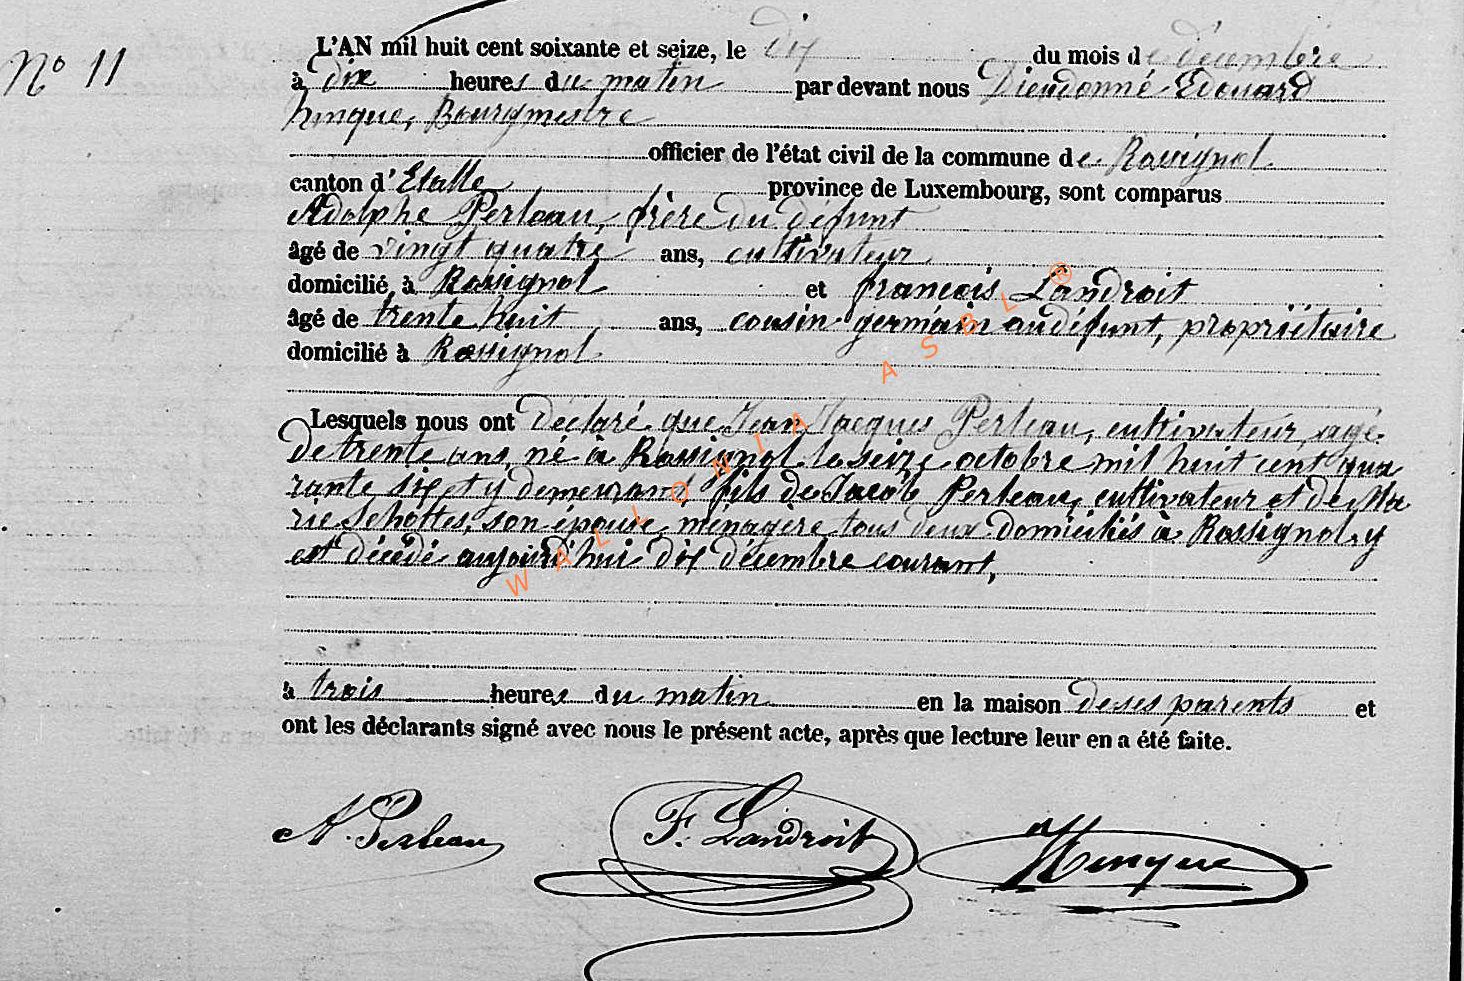 No 11
L'AN mil huit cent soixante et seize, le dix du mois de décembre
à dix heures du matin par devant nous Dieudonné Edouard
hinque, Bourgmestre
officier de l'état civil de la commune de Rossignol
canton d'Etalle province de Luxembourg, sont comparus
Adolphe Perleau, frère du défunt
âgé de vingt quatre ans, cultivateur
domicilié à Rossignol et françois Landroit
âgé de trente huit ans, cousin germain au défunt, propriétaire
domicilié à Rossignol
Lesquels nous ont déclaré que Jean Jacques Perleau, cultivateur agé
de trente ans, né à Rossignol le seize octobre mil huit cent qua
rante six et y demeurant, fils de Jacob Perleau, cultivateur et de Ma
rie Schottes, son épouse, ménagère tous deux domiciliés à Rossignol, y
est décédé aujourd'hui dix décembre courant,
à trois heures du matin en la maison de ses parents et
ont les déclarants signé avec nous le présent acte, après que lecture leur en a été faite.
A. Perleau F. Landroit Hinque
WALLONIA ASBL ®